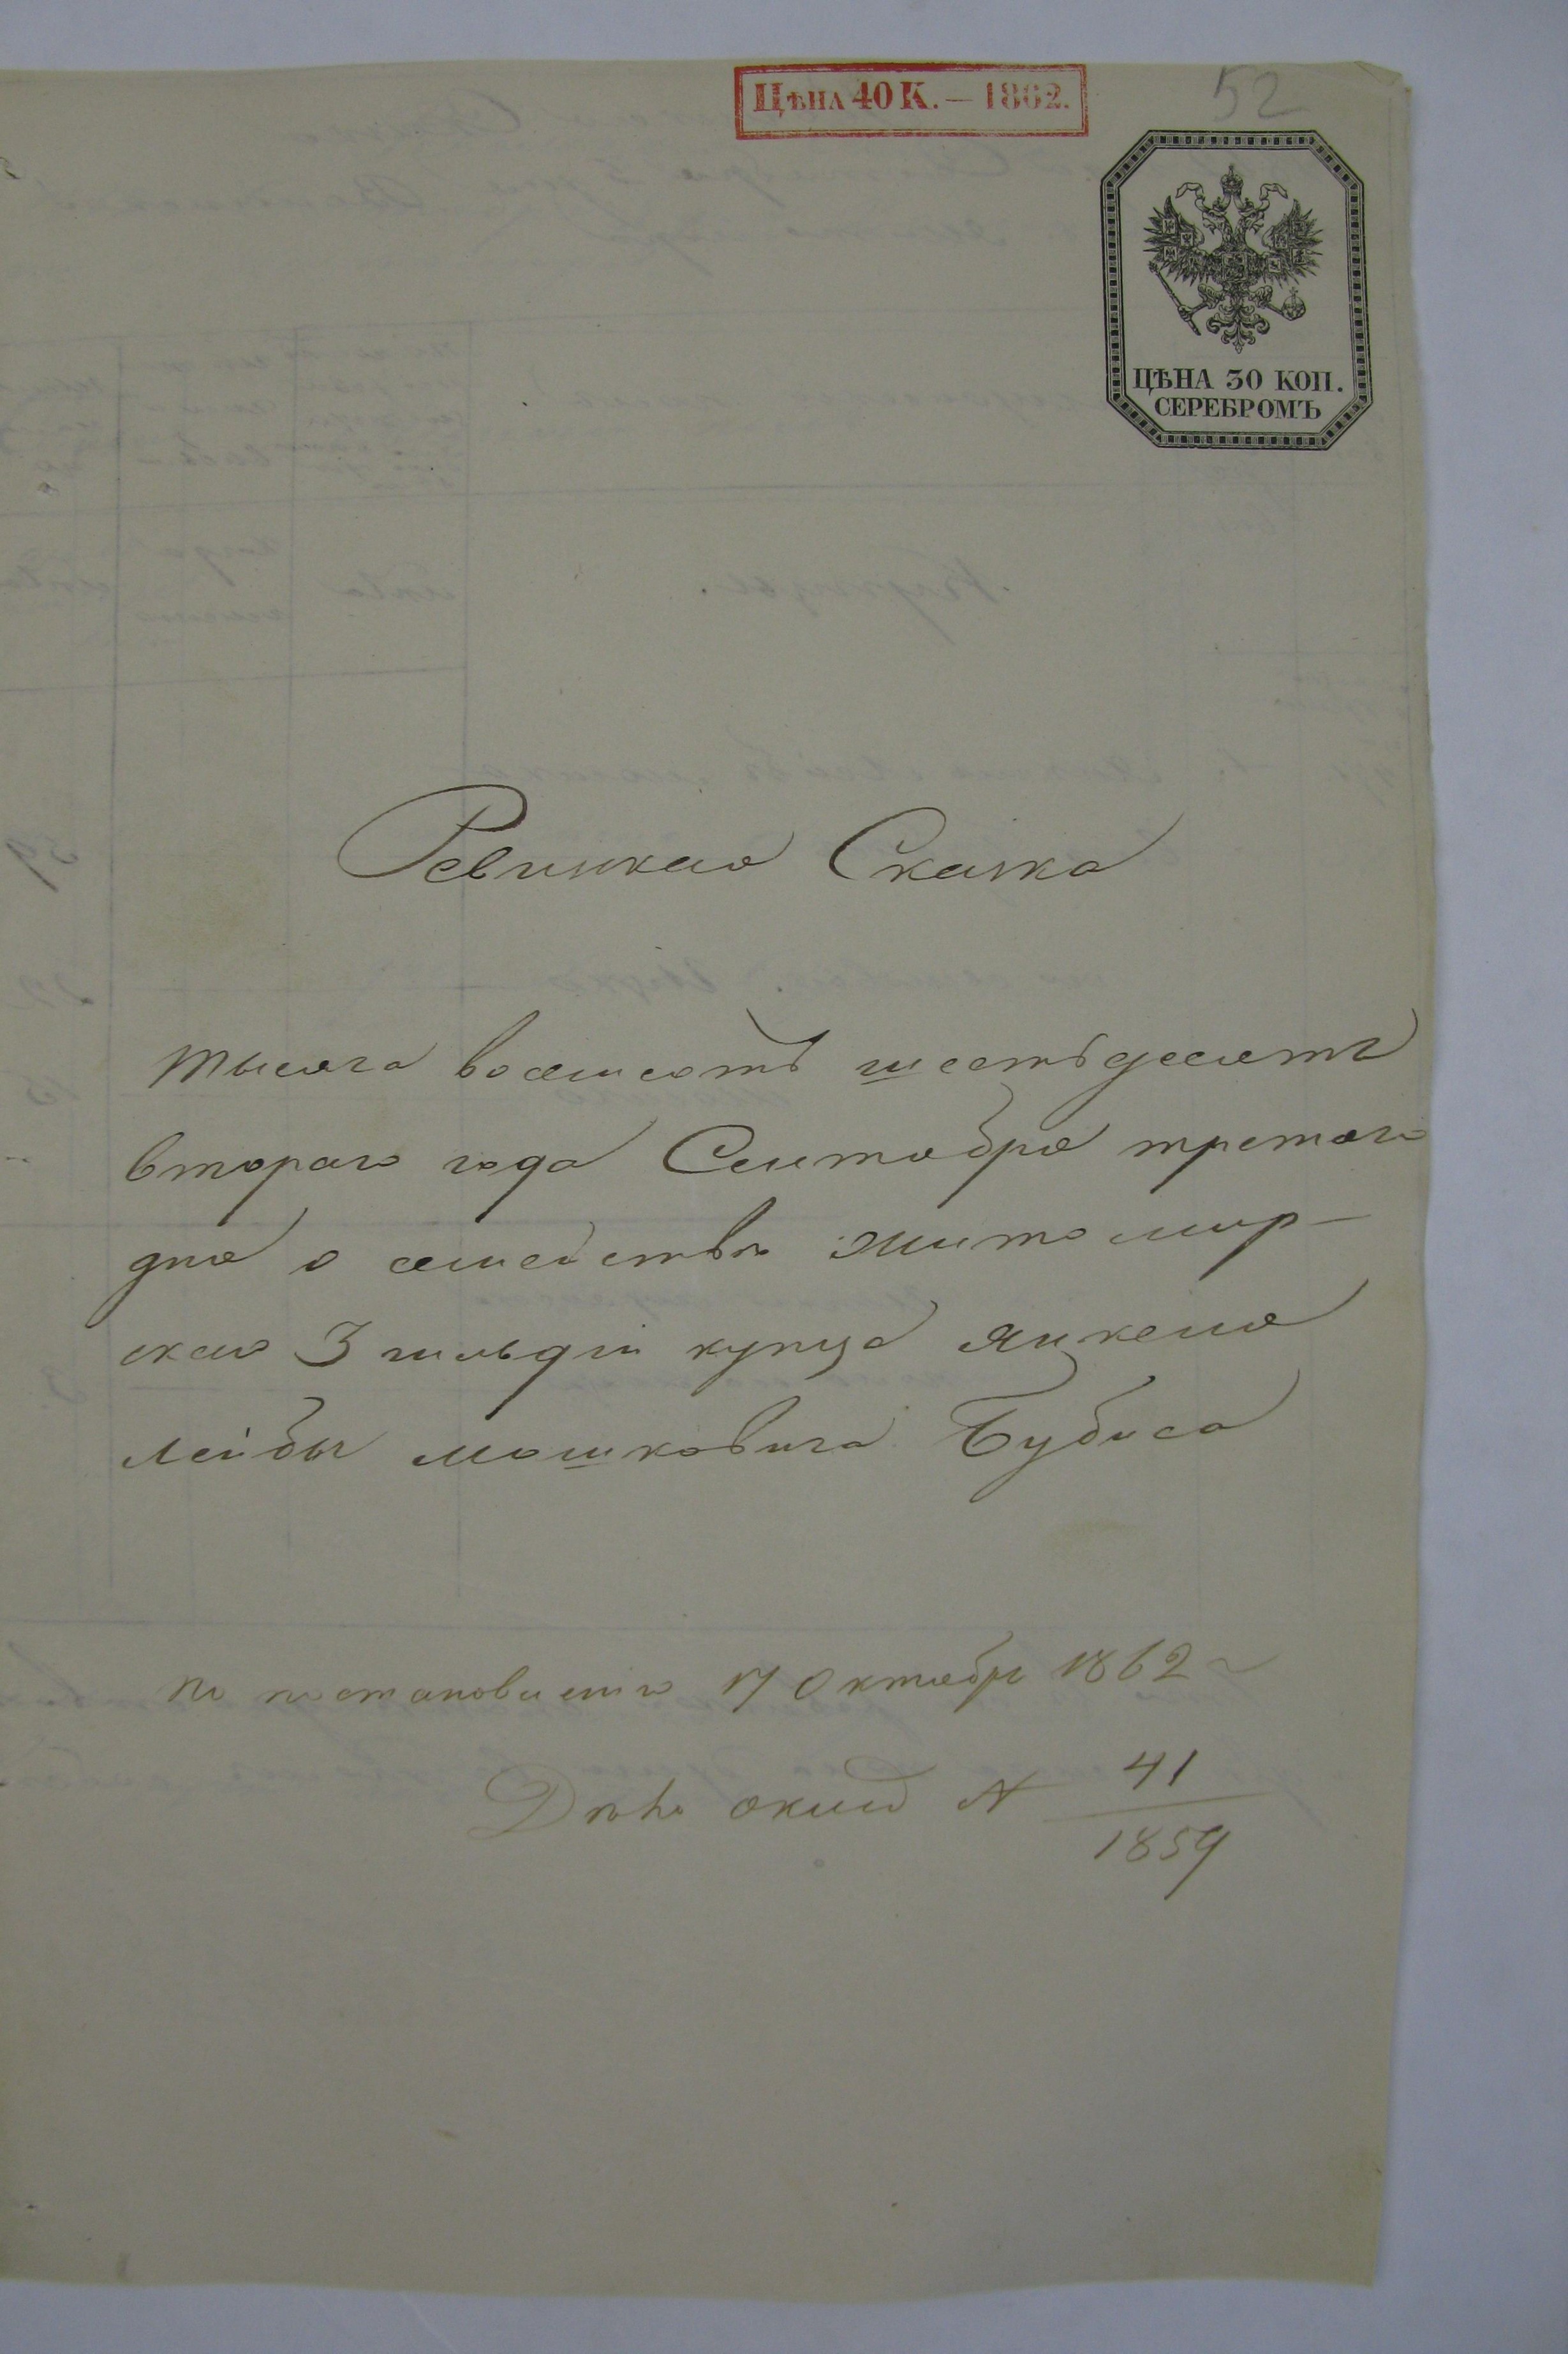 Цѣна 40 К. — 1862.
52
ЦѢНА 30 КОП.
СЕРЕБРОМЪ
Ревизкая Сказка
тысяча восемсотъ шестьдесятъ
втораго года Сентября третяго
дня о семействѣ житомир-
скаго 3 гильдіи купца Янкеля
Лейбы Мошковича Бубиса
по постановленію 17 Октября 1862 г
Дѣло № 41
1859